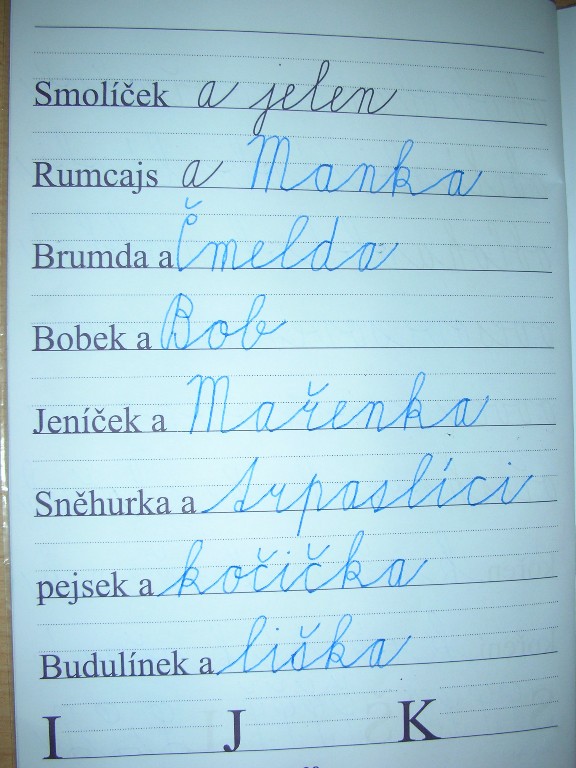 Smolíček a jelen
Rumcajs a Manka
Brumda a Čmelda
Bobek a Bob
Jeníček a Mařenka
Sněhurka a trpaslíci
pejsek a kočička
Budulínek a liška
I J K